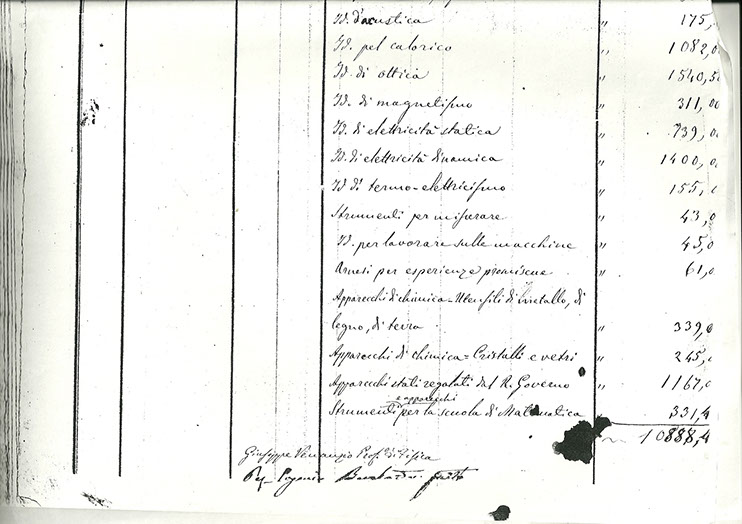 Id. d'acustica " 175,
Id. pel calorico " 1082,0
Id. di ottica " 1540,50
Id. di magnetismo " 311,00
Id. di elettricità statica " 739,0
Id. di elettricità dinamica " 1400,0
Id. di termo-elettricismo " 155,0
Strumenti per misurare " 43,0
Id. per lavorare sulle macchine " 45,0
Arnesi per esperienze promiscue " 61,0
Apparecchi di chimica - Utensili di metallo, di
legno, di terra " 339,0
Apparecchi di chimica = Cristalli e vetri " 245,
Apparecchi stati regalati dal R. Governo " 1167,0
e apparecchi
Strumenti per la scuola di Matematica " 331,4
10888,4
Giuseppe Prof. di Fisica